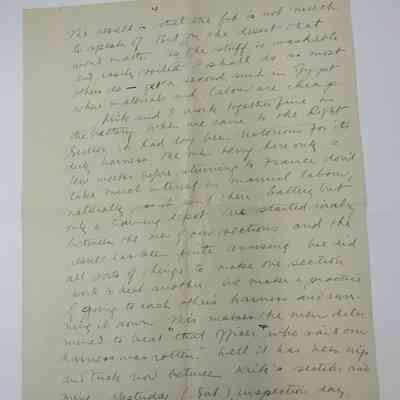 4
The result is that the fit is not much
to speak of but on the desert that
won't matter as the stuff is washable
and easily spoiled I shall do as most
others do – get a second suit in Egypt
where material and labour are cheap
and I work together fine in
the battery. When we came to the Right
Section it had long been notorious for its
dirty harness the men being here only a
few weeks before returning to France don't
take much interest in manual labour,
naturally, as it isn't their battery but
only a training depot. We started rivalry
between the men of our sections and the
result has been quite amusing. We did
all sorts of things to make one section
work to beat another. We make a practice
of going to each other's harness and run-
ning it down. This makes the men deter-
mined to beat "that officer" who said our
harness was rotten. Well it has been nip
and tuck now between section and
mine. Yesterday (Sat) inspection day